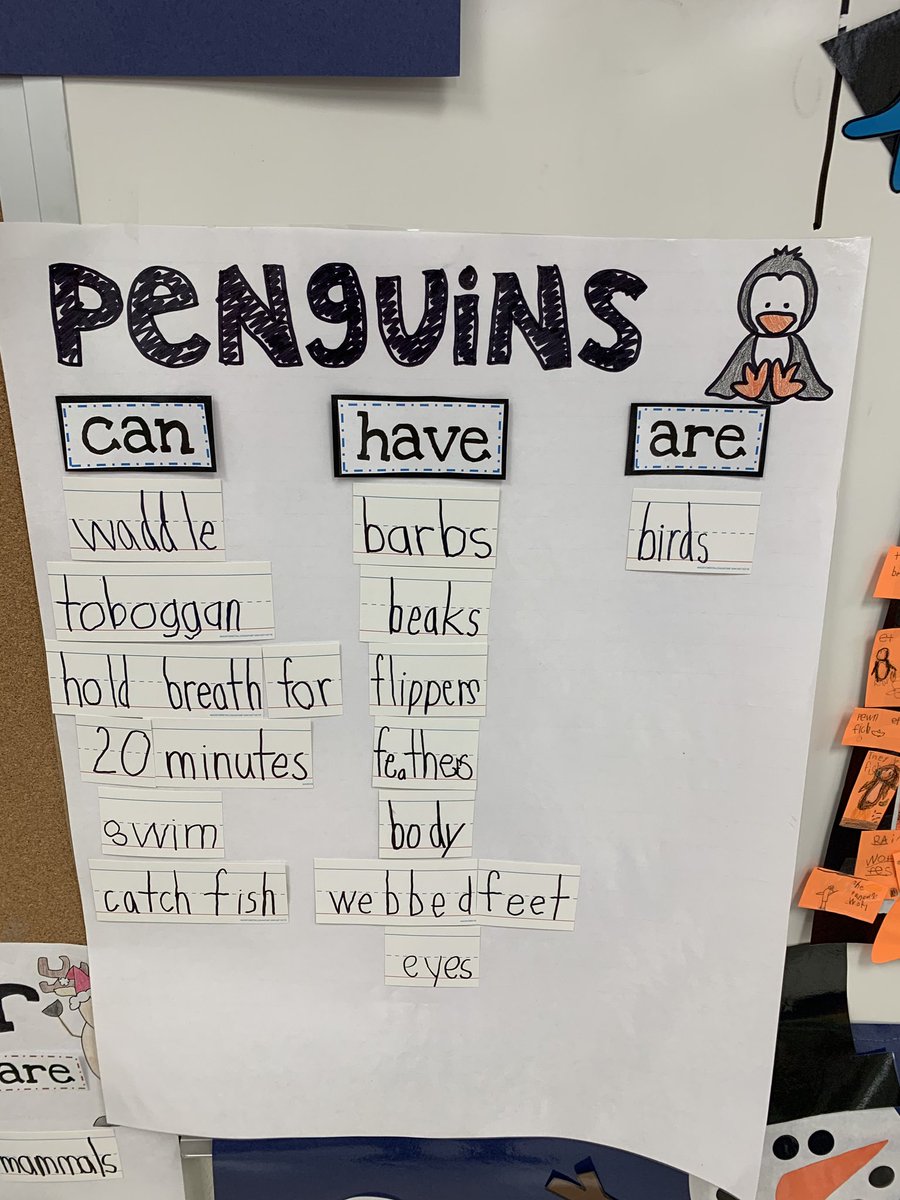 PENGUINS
can
waddle
toboggan
hold breath for
20 minutes
swim
catch fish
have
barbs
beaks
flippers
feathers
body
webbed feet
eyes
are
birds
r
are
mammals